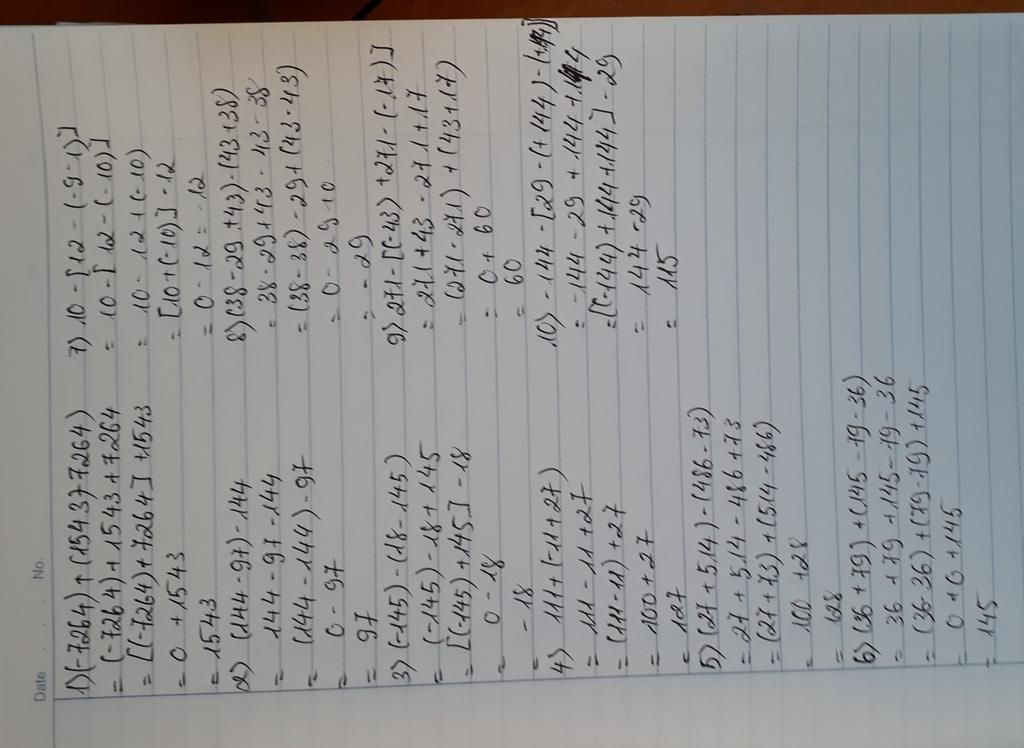 Date No.
1) (-7264) + (1543 + 7264)
= (-7264) + 1543 + 7264
= [(-7264) + 7264] + 1543
= 0 + 1543
= 1543
2) (144 - 97) - 144
= 144 - 97 - 144
= (144 - 144) - 97
= 0 - 97
= 97
3) (-145) - (18 - 145)
= (-145) - 18 + 145
= [(-145) + 145] - 18
= 0 - 18
= -18
4) 111 + (-11 + 27)
= 111 - 11 + 27
= (111 - 11) + 27
= 100 + 27
= 127
5) (27 + 514) - (486 - 73)
= 27 + 514 - 486 + 73
= (27 + 73) + (514 - 486)
= 100 + 28
= 128
6) (36 + 79) + (145 - 79 - 36)
= 36 + 79 + 145 - 79 - 36
= (36 - 36) + (79 - 79) + 145
= 0 + 0 + 145
= 145
7) 10 - [12 - (-9 - 1)]
= 10 - [12 - (-10)]
= 10 - 12 + (-10)
= [10 + (-10)] - 12
= 0 - 12 = -12
8) (38 - 29 + 43) - (43 + 38)
= 38 - 29 + 43 - 43 - 38
= (38 - 38) - 29 + (43 - 43)
= 0 - 29 + 0
= -29
9) 271 - [(-43) + 271 - (-17)]
= 271 + 43 - 271 + 17
= (271 - 271) + (43 + 17)
= 0 + 60
= 60
10) -144 - [29 - (+144) - (+144)]
= -144 - 29 + 144 + 144
= [(-144) + 144 + 144] - 29
= 144 - 29
= 115